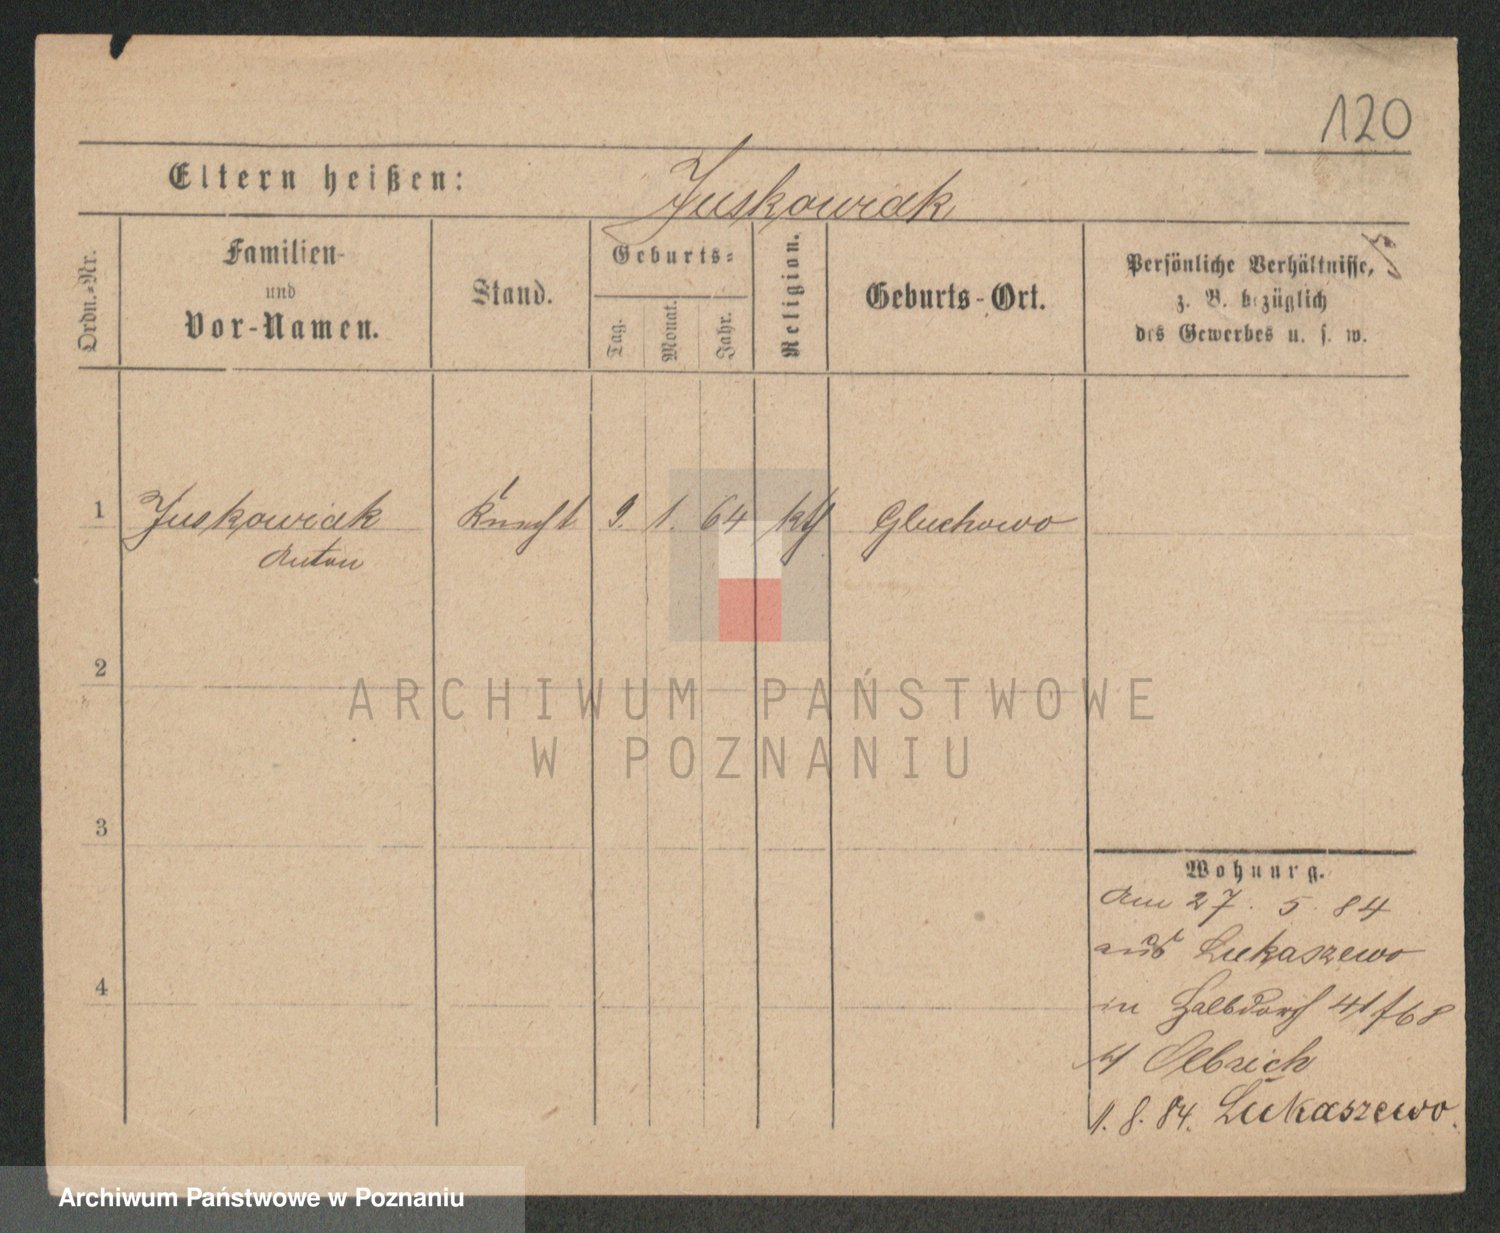 120
Eltern heißen: Juskowiak
Ordn.-Nr.
Familien-
und
Vor-Namen.
Stand.
Geburts-
Tag.
Monat.
Jahr.
Religion.
Geburts-Ort.
Persönliche Verhältnisse,
z. B. bezüglich
des Gewerbes u. s. w.
1 Juskowiak Knecht 9. 1. 64 kth Gluchowo
Anton
2
ARCHIWUM PAŃSTWOWE
W POZNANIU
3
Wohnung.
Am 27. 5. 84
aus Lukaszewo
4
in Halbdorf 41/68
Olbrich
1. 8. 84. Lukaszewo.
Archiwum Państwowe w Poznaniu